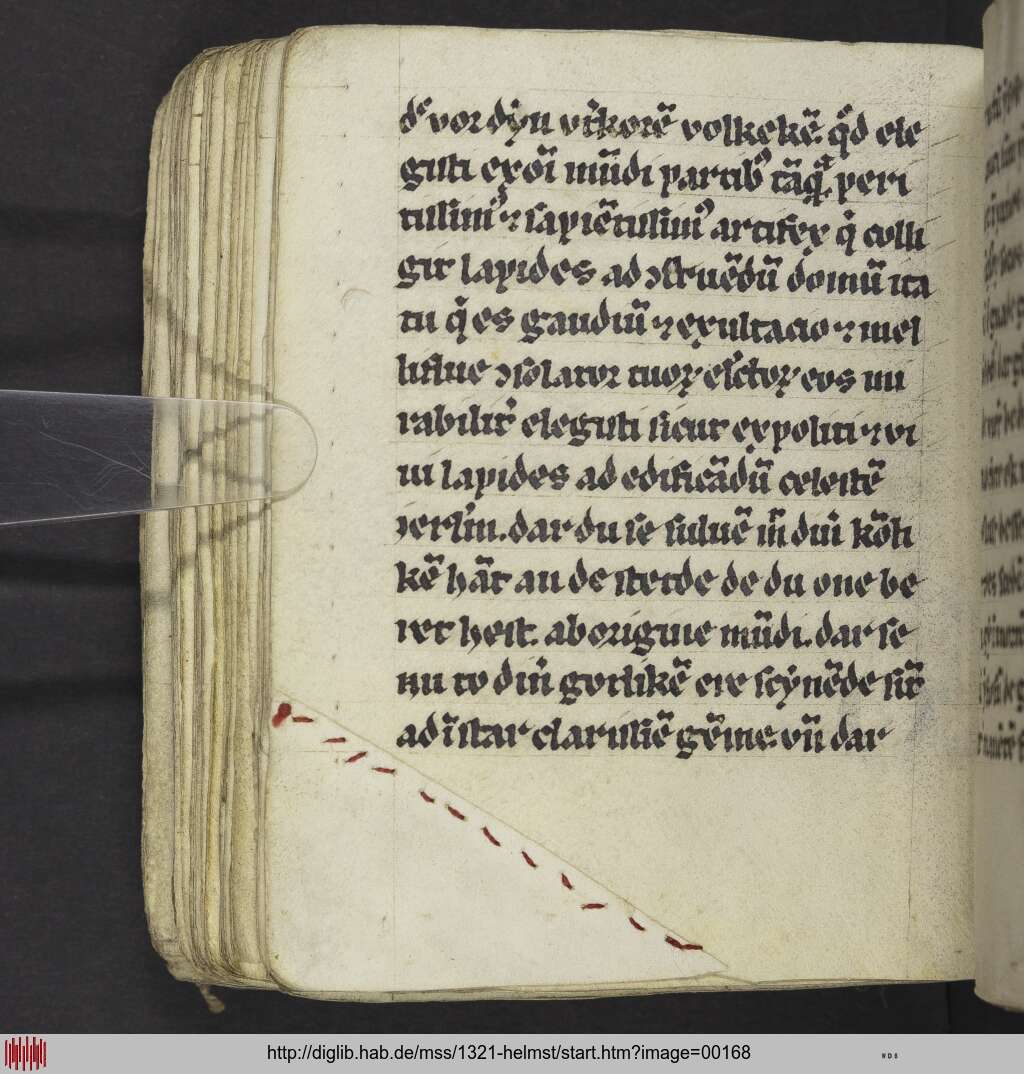 dͤ vor dẏn vt̕korē volkekē. qͥd ele
gisti ex oī mūdi partibꝰ tāqͣꝫ peri
tissimꝰ ⁊ sapiētissimꝰ artifex qͥ colli
git lapides ad ɔstruēdū domū ita
tu qͥ es gaudiū ⁊ exultacio ⁊ mel
liflue ɔsolator tuoꝝ elc̄toꝝ eos mi
rabilit̕ elegisti sicut expoliti ⁊ vi
ui lapides ad edificādū celestē
ierlꝫm. dar du se suluē m̄ dīn kōli
kē hāt an de stetde de du one be
iet hest. ab origine mūdi. dar se
nu to dīn gotlikē ere scẏnēde sīt
ad īstar clarissīe gēme. vn̄ dar
http://diglib.hab.de/mss/1321-helmst/start.htm?image=00168